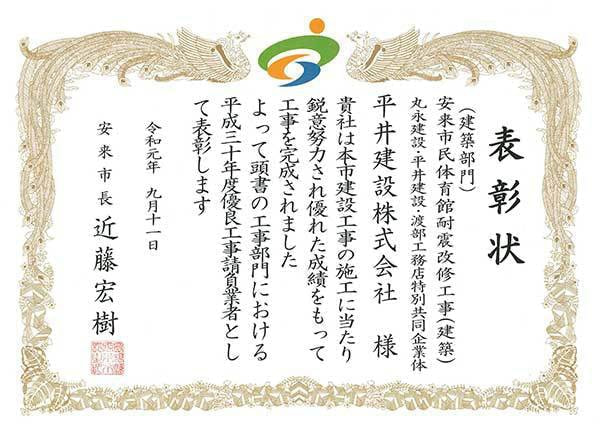 表彰状
(建築部門)
安来市民体育館耐震改修工事(建築)
丸永建設・平井建設・渡部工務店特別共同企業体
平井建設株式会社 様
貴社は本市建設工事の施工に当たり
鋭意努力され優れた成績をもって
工事を完成されました
よって頭書の工事部門における
平成三十年度優良工事請負業者とし
て表彰します
令和元年 九月十一日
安来市長 近藤宏樹